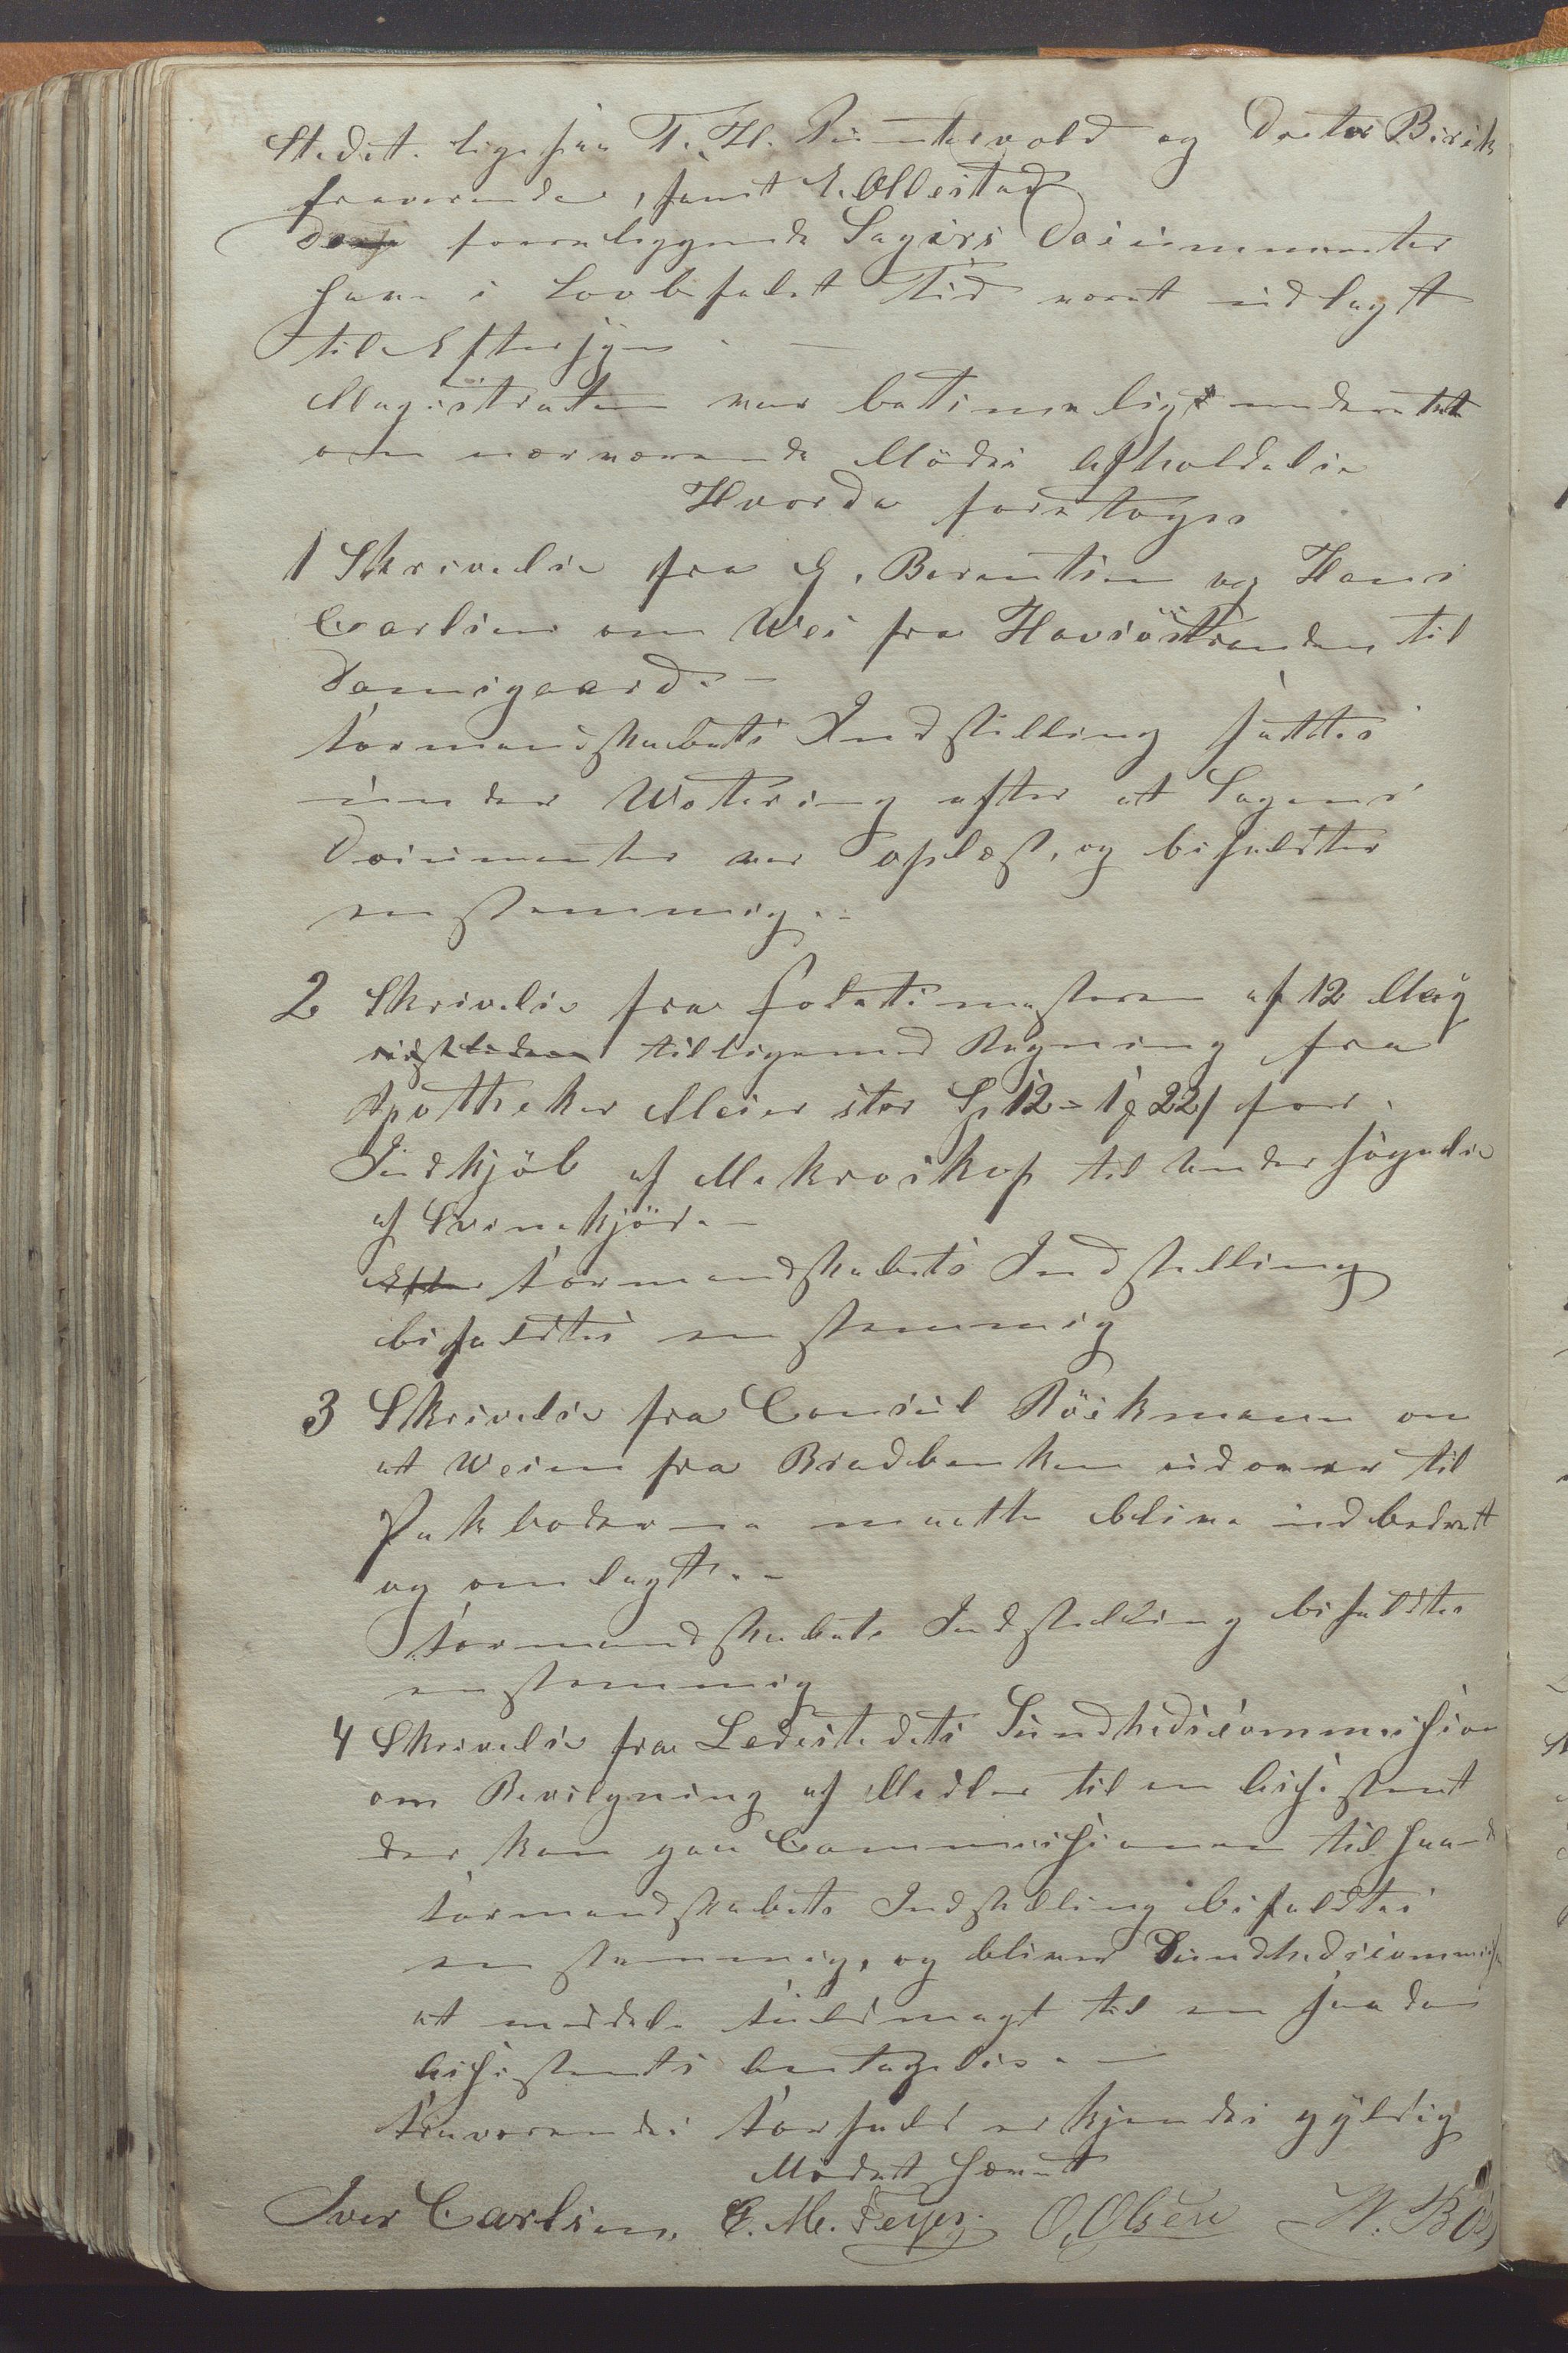 Stedet. ligesaa T. H. Puntervold og Doctor Birch
fraværende, samt E. Ollestad
foreliggende Sagers Documenter
have i Lovbefalet Tid været udlagt
til Eftersyn. —
Magistraten var betimeligt underrettet
om nærværende Mödes Afholdelse
Hvorda foretoges
1 Skrivelse fra G. Berentsen og Hans
Carlsen om Wei fra Havsöstranden til
Damsgaard. —
Formandskabets Indstilling sattes
under Wotering efter at Sagens
Documenter var oplæst, og bifaldtes
enstemmig. -
2 Skrivelse fra Politimesteren af 12 May
sidstleden tilligemed Regning fra
Apotheker Meier stor Sp 12 - 1 22 for
Indkjöb af Mekroskop til Undersögelse
af Svinekjöd. —
Efter Formandskabets Indstilling
bifaldtes enstemmig
3 Skrivelse fra Consul Böckmann om
at Weien fra Bradbenken udover til
Pakboderne maatte blive udbedret
og omlagt. -
Formandskabets Indstilling bifaldtes
enstemmig
4 Skrivelse fra Ladestedets Sundhedscommission
om Bevilgning af Medler til en Assistent
der kan gaa Commissionen til Haand
Formandskabets Indstilling bifaldtes
enstemmig, og bliver Sundhedscommiss
at meddele Fuldmagt til en saadan
Assistents Antagelse. —
Fraværendes Forfald erkjendes gyldig
Mödet hævet
Iver Carlsen. C. M. Feyer. O. Olsen N. Bö